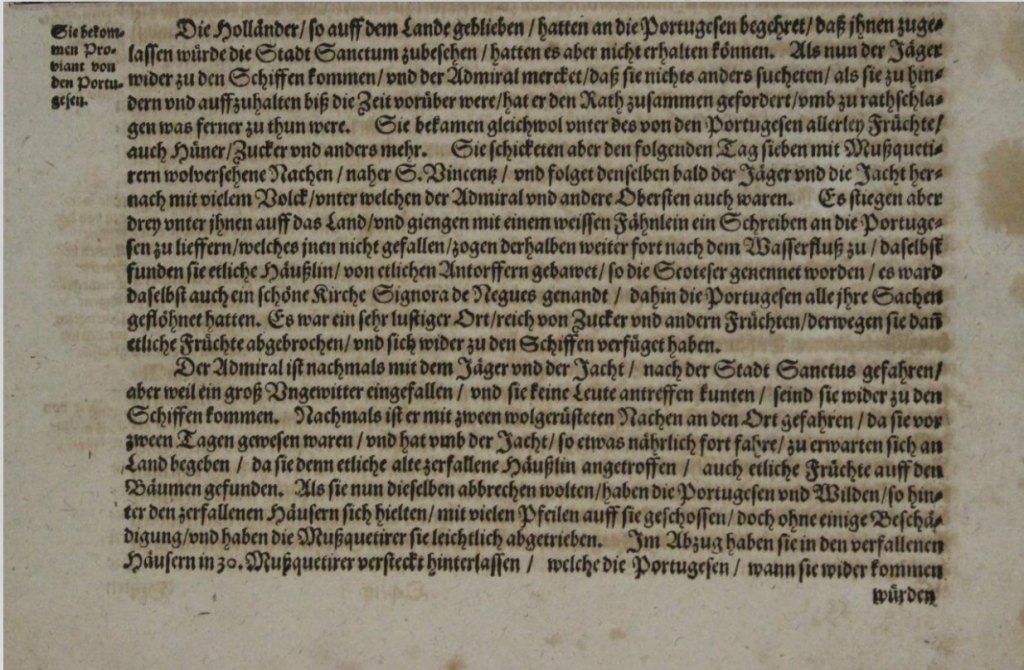 Sie bekom-
men Pro-
viant von
den Portu-
gesen.
Die Holländer/ so auff dem Lande geblieben / hatten an die Portugesen begehret/ daß jhnen zuge-
lassen würde die Stadt Sanctum zubesehen / hatten es aber nicht erhalten können. Als nun der Jäger
wider zu den Schiffen kommen/ vnd der Admiral mercket/ daß sie nichts anders sucheten/ als sie zu hin-
dern vnd auffzuhalten biß die Zeit vorüber were/ hat er den Rath zusammen gefordert/ vmb zu rathschla-
gen was ferner zu thun were. Sie bekamen gleichwol vnter des von den Portugesen allerley Früchte/
auch Hüner/ Zucker vnd anders mehr. Sie schicketen aber den folgenden Tag sieben mit Mußqueti-
rern wolversehene Nachen / naher S. Vincentz / vnd folget denselben bald der Jäger vnd die Jacht her-
nach mit vielem Volck/ vnter welchen der Admiral vnd andere Obersten auch waren. Es stiegen aber
drey vnter jhnen auff das Land/ vnd giengen mit einem weissen Fähnlein ein Schreiben an die Portuge-
sen zu lieffern/ welches jnen nicht gefallen/ zogen derhalben weiter fort nach dem Wasserfluß zu / daselbst
funden sie etliche Häußlin/ von etlichen Antorffern gebawet/ so die Scoteser genennet worden / es ward
daselbst auch ein schöne Kirche Signora de Negues genandt / dahin die Portugesen alle jhre Sachen
geflöhnet hatten. Es war ein sehr lustiger Ort/ reich von Zucker vnd andern Früchten/ derwegen sie dañ
etliche Früchte abgebrochen/ vnd sich wider zu den Schiffen verfüget haben.
Der Admiral ist nachmals mit dem Jäger vnd der Jacht / nach der Stadt Sanctus gefahren/
aber weil ein groß Vngewitter eingefallen / vnd sie keine Leute antreffen kunten / seind sie wider zu den
Schiffen kommen. Nachmals ist er mit zween wolgerüsteten Nachen an den Ort gefahren / da sie vor
zween Tagen gewesen waren / vnd hat vmb der Jacht/ so etwas nährlich fort fahre/ zu erwarten sich an
Land begeben / da sie denn etliche alte zerfallene Häußlin angetroffen / auch etliche Früchte auff den
Bäumen gefunden. Als sie nun dieselben abbrechen wolten/ haben die Portugesen vnd Wilden/ so hin-
ter den zerfallenen Häusern sich hielten/ mit vielen Pfeilen auff sie geschossen/ doch ohne einige Beschä-
digung/ vnd haben die Mußquetirer sie leichtlich abgetrieben. Im Abzug haben sie in den verfallenen
Häusern in 30. Mußquetirer versteckt hinterlassen / welche die Portugesen / wann sie wider kommen
würden